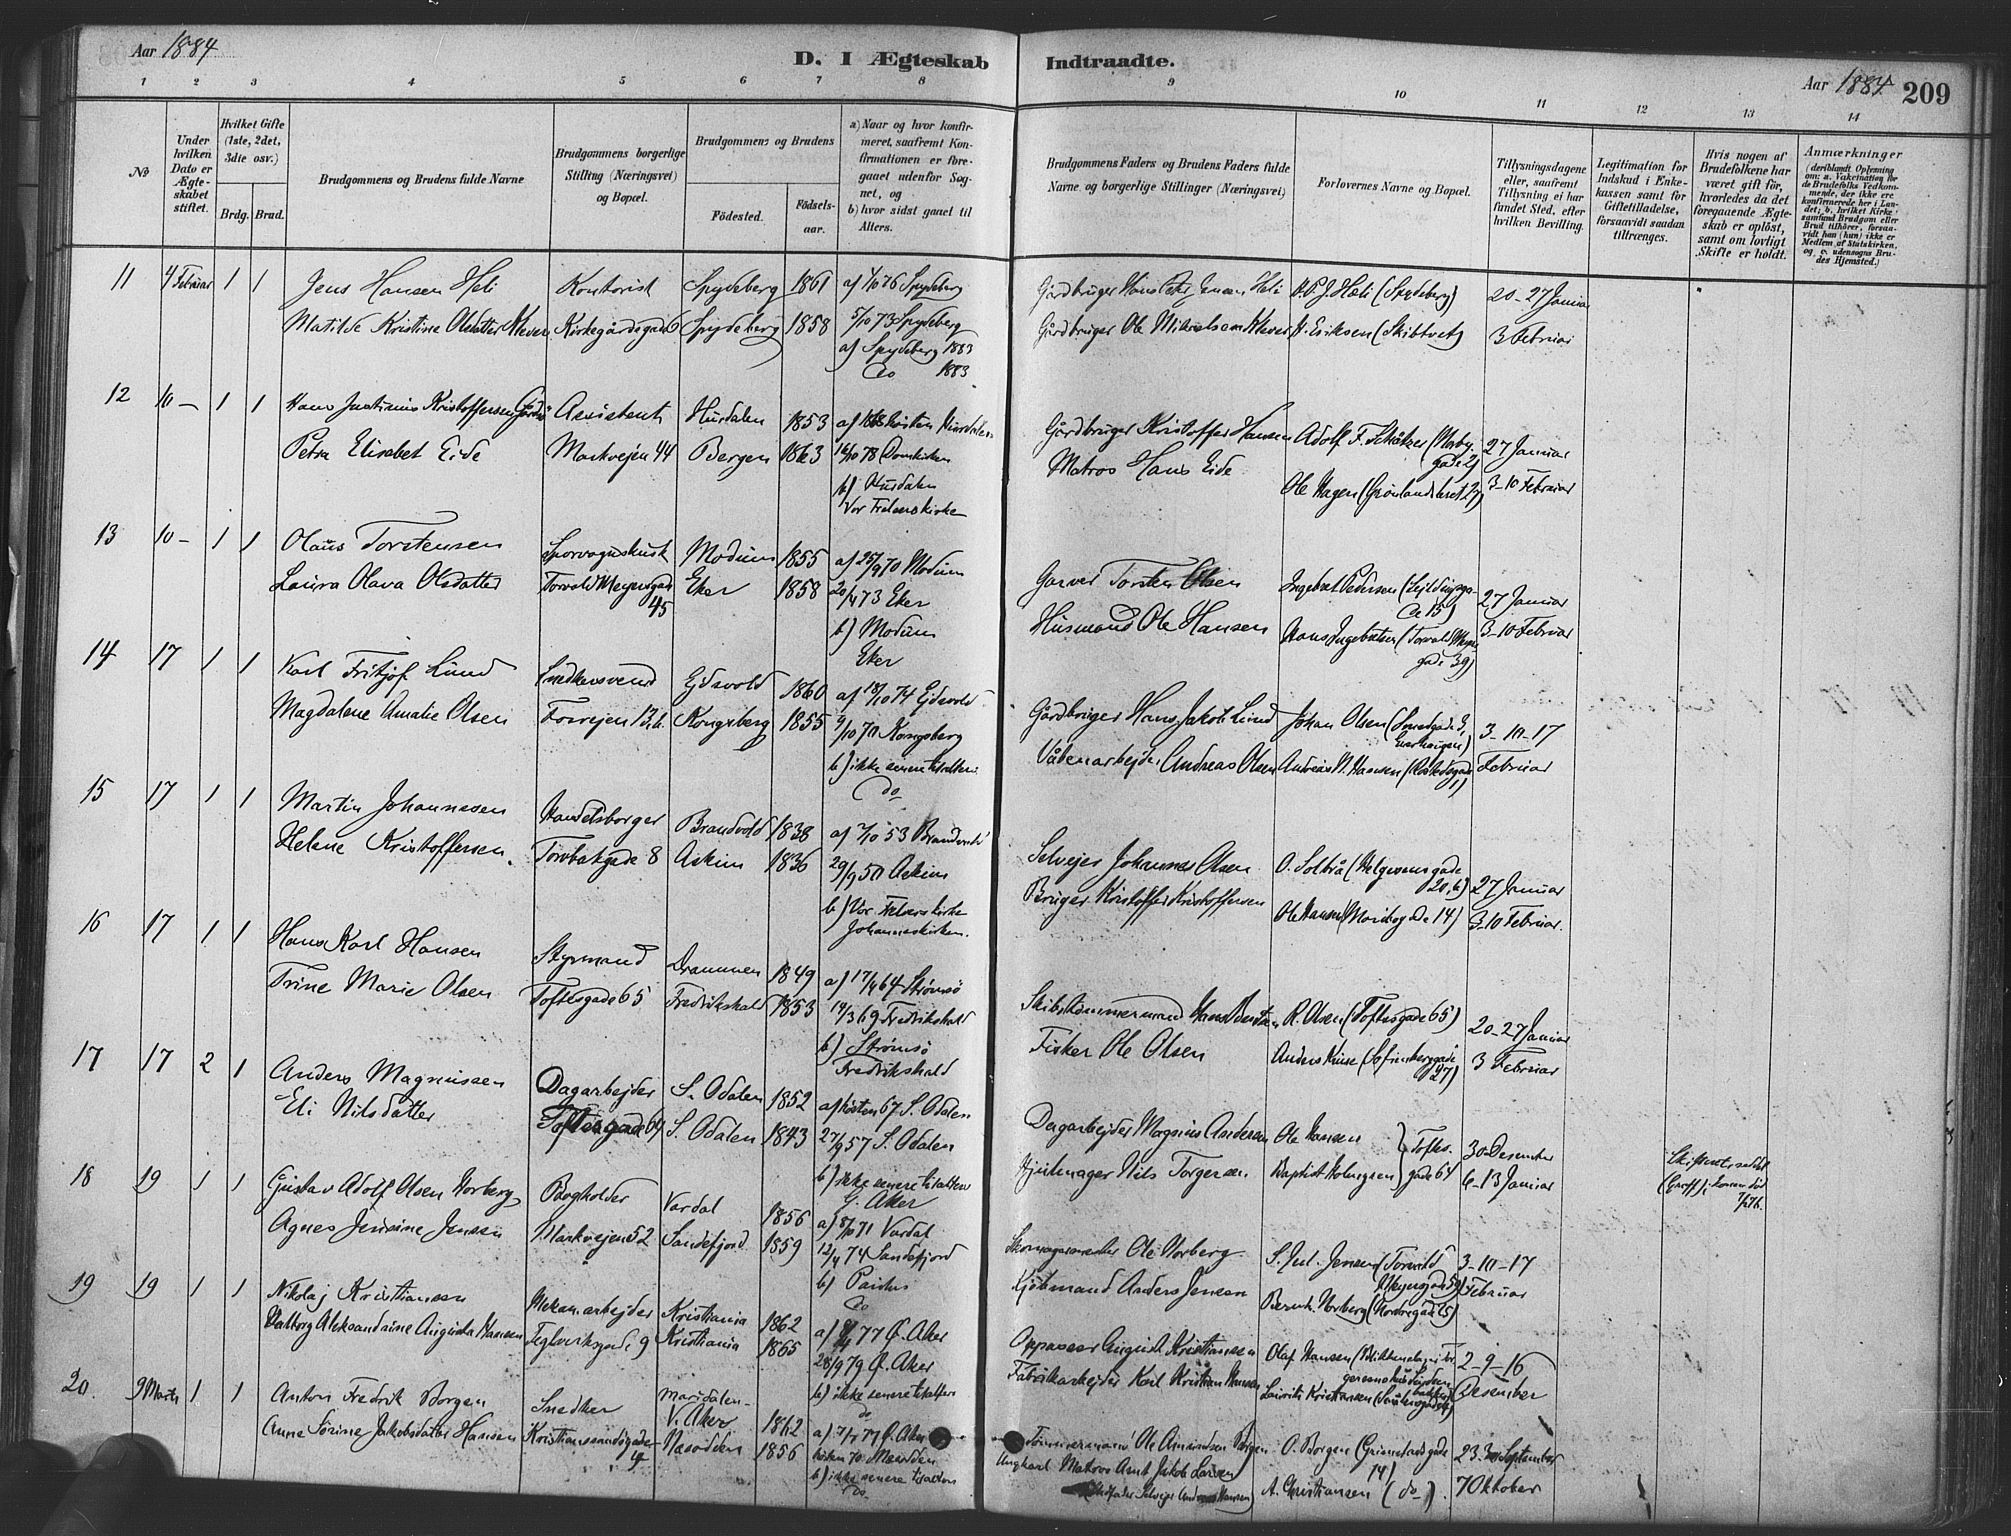 Aar 1884
D. I Ægteskab Indtraadte.
Aar 1884. 209
1 2 3 4 5 6 7 8 9 10 11 12 13 14
No
Under hvilken Dato er Ægteskabet stiftet.
Hvilket Gifte (1ste, 2det, 3die osv.)
Brdg. Brud.
Brudgommens og Brudens fulde Navne
Brudgommens borgerlige Stilling (Næringsvei) og Bopæl.
Brudgommens og Brudens
Fødested.
Fødsels-aar.
a) Naar og hvor konfirmeret, saafremt Konfirmationen er foregaaet udenfor Sognet, og
b) hvor sidst gaaet til Alters.
Brudgommens Faders og Brudens Faders fulde Navne og borgerlige Stillinger (Næringsvei)
Forlovernes Navne og Bopæl.
Tillysningsdagene eller, saafremt Tillysning ei har fundet Sted, efter hvilken Bevilling.
Legitimation for Indskud i Enkekassen samt for Giftetilladelse, forsaavidt saadan tiltrænges.
Hvis nogen af Brudefolkene har været gift før, hvorledes da det foregaaende Ægteskab er opløst, samt om lovligt Skifte er holdt.
Anmærkninger (deriblandt Oplysning om: a. Vakcination for de Brudefolks Vedkommende, der ikke ere konfirmerede her i Landet; b. hvilket Kirkesamfund Brudgom eller Brud tilhører, forsaavidt han (hun) ikke er Medlem af Statskirken, og c. udensogns Brudes Hjemsted.)
11 4 Februar 1 1 Jens Hansen Heli Kontorist Spydeberg 1861 a) 1/10 76 Spydeberg
Matilde Kristine Olsdatter Kirkegårdsgade 6 Spydeberg 1858 5/10 73 Spydeberg
a) Spydeberg 1883
do 1883
Gårdbruger Jensen Heli (Spydeberg) 20-27 Januar
Gårdbruger Ole Mikkelsen H. Eriksen (Skibtvet) 3 Februar
12 10 — 1 1 Hans Justinius Kristoffersen Assistent Hurdalen 1853 a) 1868 høsten Hurdalen
Petra Elisabet Eide Markvejen 44 Bergen 1863 /10 78 Domkirken
b) Hurdalen
Vor Frelsers kirke
Gårdbruger Kristoffer Hansen Adolf F. 27 Januar
Matros Hans Eide Ole Hagen (Grønlandsleret 27) 3-10 Februar
13 10 — 1 1 Olaus Torstensen Sporvognskusk Modum 1855 a) 25/9 70 Modum
Laura Olava Olsdatter Torvald Meyersgad 45 Eker 1858 20/4 73 Eker
b) Modum
Eker
Garver Torsten Olsen Ingebret Pedersen 27 Januar
Husmand Ole Hansen Hans Ingebretsen (Torvald Meyersgade 39) 3-10 Februar
14 17 1 1 Karl Fritjof Lund Snedkersvend Ejdsvold 1860 a) 18/10 74 Ejdsvold
Magdalene Amalie Olsen Fossvejen 13.b. Kongsberg 1855 9/10 70 Kongsberg
b) ikke senere til alters.
do
Gårdbruger Hans Jakob Lund Johan Olsen 3-10-17
Våbenarbejder Andreas Olsen Andreas Hansen Februar
15 17 1 1 Martin Johannesen Handelsborger Brandvold 1838 a) 2/10 53 Brandvold
Helene Kristoffersen. Torvbakgade 8 Askim 1836 29/9 50 Askim
b) Vor Frelsers kirke
Johanneskirken.
Selvejer Johannes Olsen O. Solbrå (Helgesensgade 20, b) 27 Januar
Bruger Kristoffer Kristoffersen Ole Hansen (Maridog de 14) 3-10 Februar.
16 17 1 1 Hans Karl Hansen Styrmand Drammen 1849 a) 17/4 64 Strømsø
Trine Marie Olsen Toftesgade 65 Fredrikshald 1853 14/3 69 Fredrikshald
b) Strømsø
Fredrikshald
Skibstømmermand Hans Berntsen R. Olsen (Toftesgade 65) 20-27 Januar
Fisker Ole Olsen Anders Kruse (Sofienberggade 27) 3 Februar
17 17 2 1 Anders Magnussen Dagarbejder S. Odalen 1852 a) høsten 67 S. Odalen
Eli Nilsdatter Toftesgade 64 S. Odalen 1843 27/9 57 S. Odalen
b) ikke senere til alters
G. Aker
Dagarbejder Magnus Andersen Ole Hansen 30 Desember
Hjulmager Nils Torgersen Baptist Holmgsen } Toftesgade 64 6-13 Januar
18 19 1 1 Gustav Adolf Olsen Norberg Bogholder Vardal 1856 a) 8/10 71 Vardal
Agnes Jensine Jensen Markvejen 52 Sandefjord 1859 12/4 74 Sandefjord
b) Paulus
do
Skomagermester Ole Norberg S. Jul. Jensen (Torvald Meyersgade 59) 3-10-17
Kjøbmand Anders Jensen Bernh. Norberg (Nordregade 15) Februar
19 19 1 1 Nikolaj Kristiansen Mekan. arbejder Kristiania 1862 a) 77 Ø. Aker
Valborg Aleksandrine Augusta Hansen Teglverksgade 9 Kristiania 1865 28/9 79 Ø. Aker
b) ikke senere til alters
do
Oppasser August Kristiansen Olaf Hansen 2-9-16
Fabrikarbejder Karl Kristian Hansen Laurits Kristiansen Desember
20. 9 Marts 1 1 Anton Fredrik Borgen Snedker Maridalen V. Aker 1862 a) 7/7 77 Ø. Aker
Anne Sørine Jakobsdatter Hansen Kristianssandsgade 4 Nesodden 1856 høsten 70 Nesodden
b) ikke senere til alters
do
Tømmermand Ole Amundsen Borgen O. Borgen (Grimstadsgade 14) 23.30 September
Ungkarl Matros Arnt Jakob Larsen A. Christiansen (do). 7 Oktober
Selvejer Andreas Hansen)